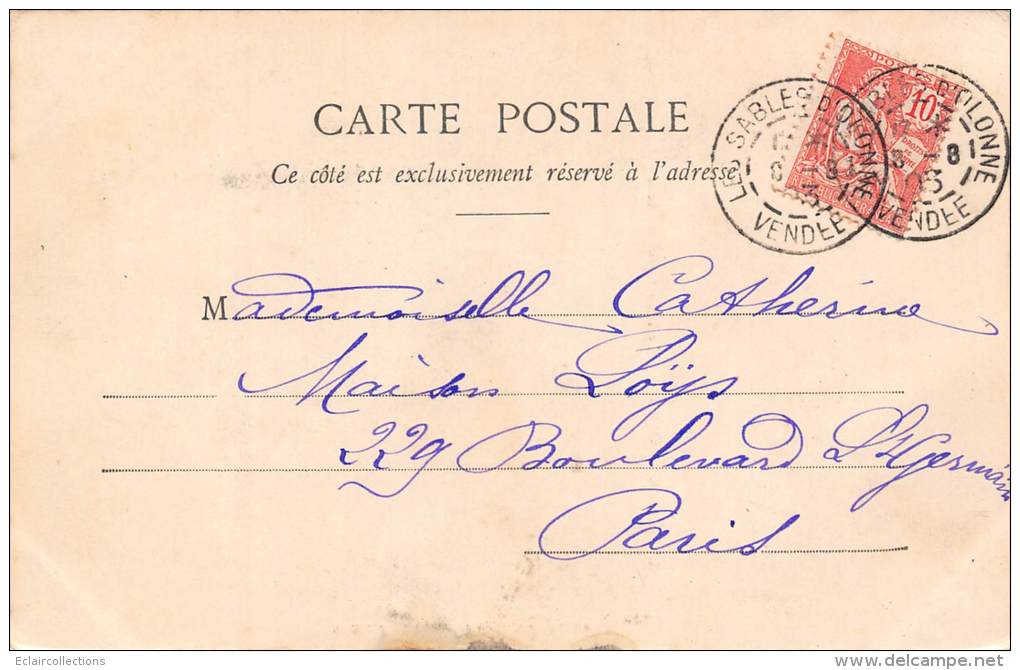 CARTE POSTALE
Ce côté est exclusivement réservé à l'adresse
POSTES
10
LES SABLES D'OLONNE
8
VENDÉE
D'OLONNE
8
03
VENDÉE
Mademoiselle Catherine
Maison Loÿs
229 Boulevard St Germain
Paris
Eclaircollections
delcampe.net